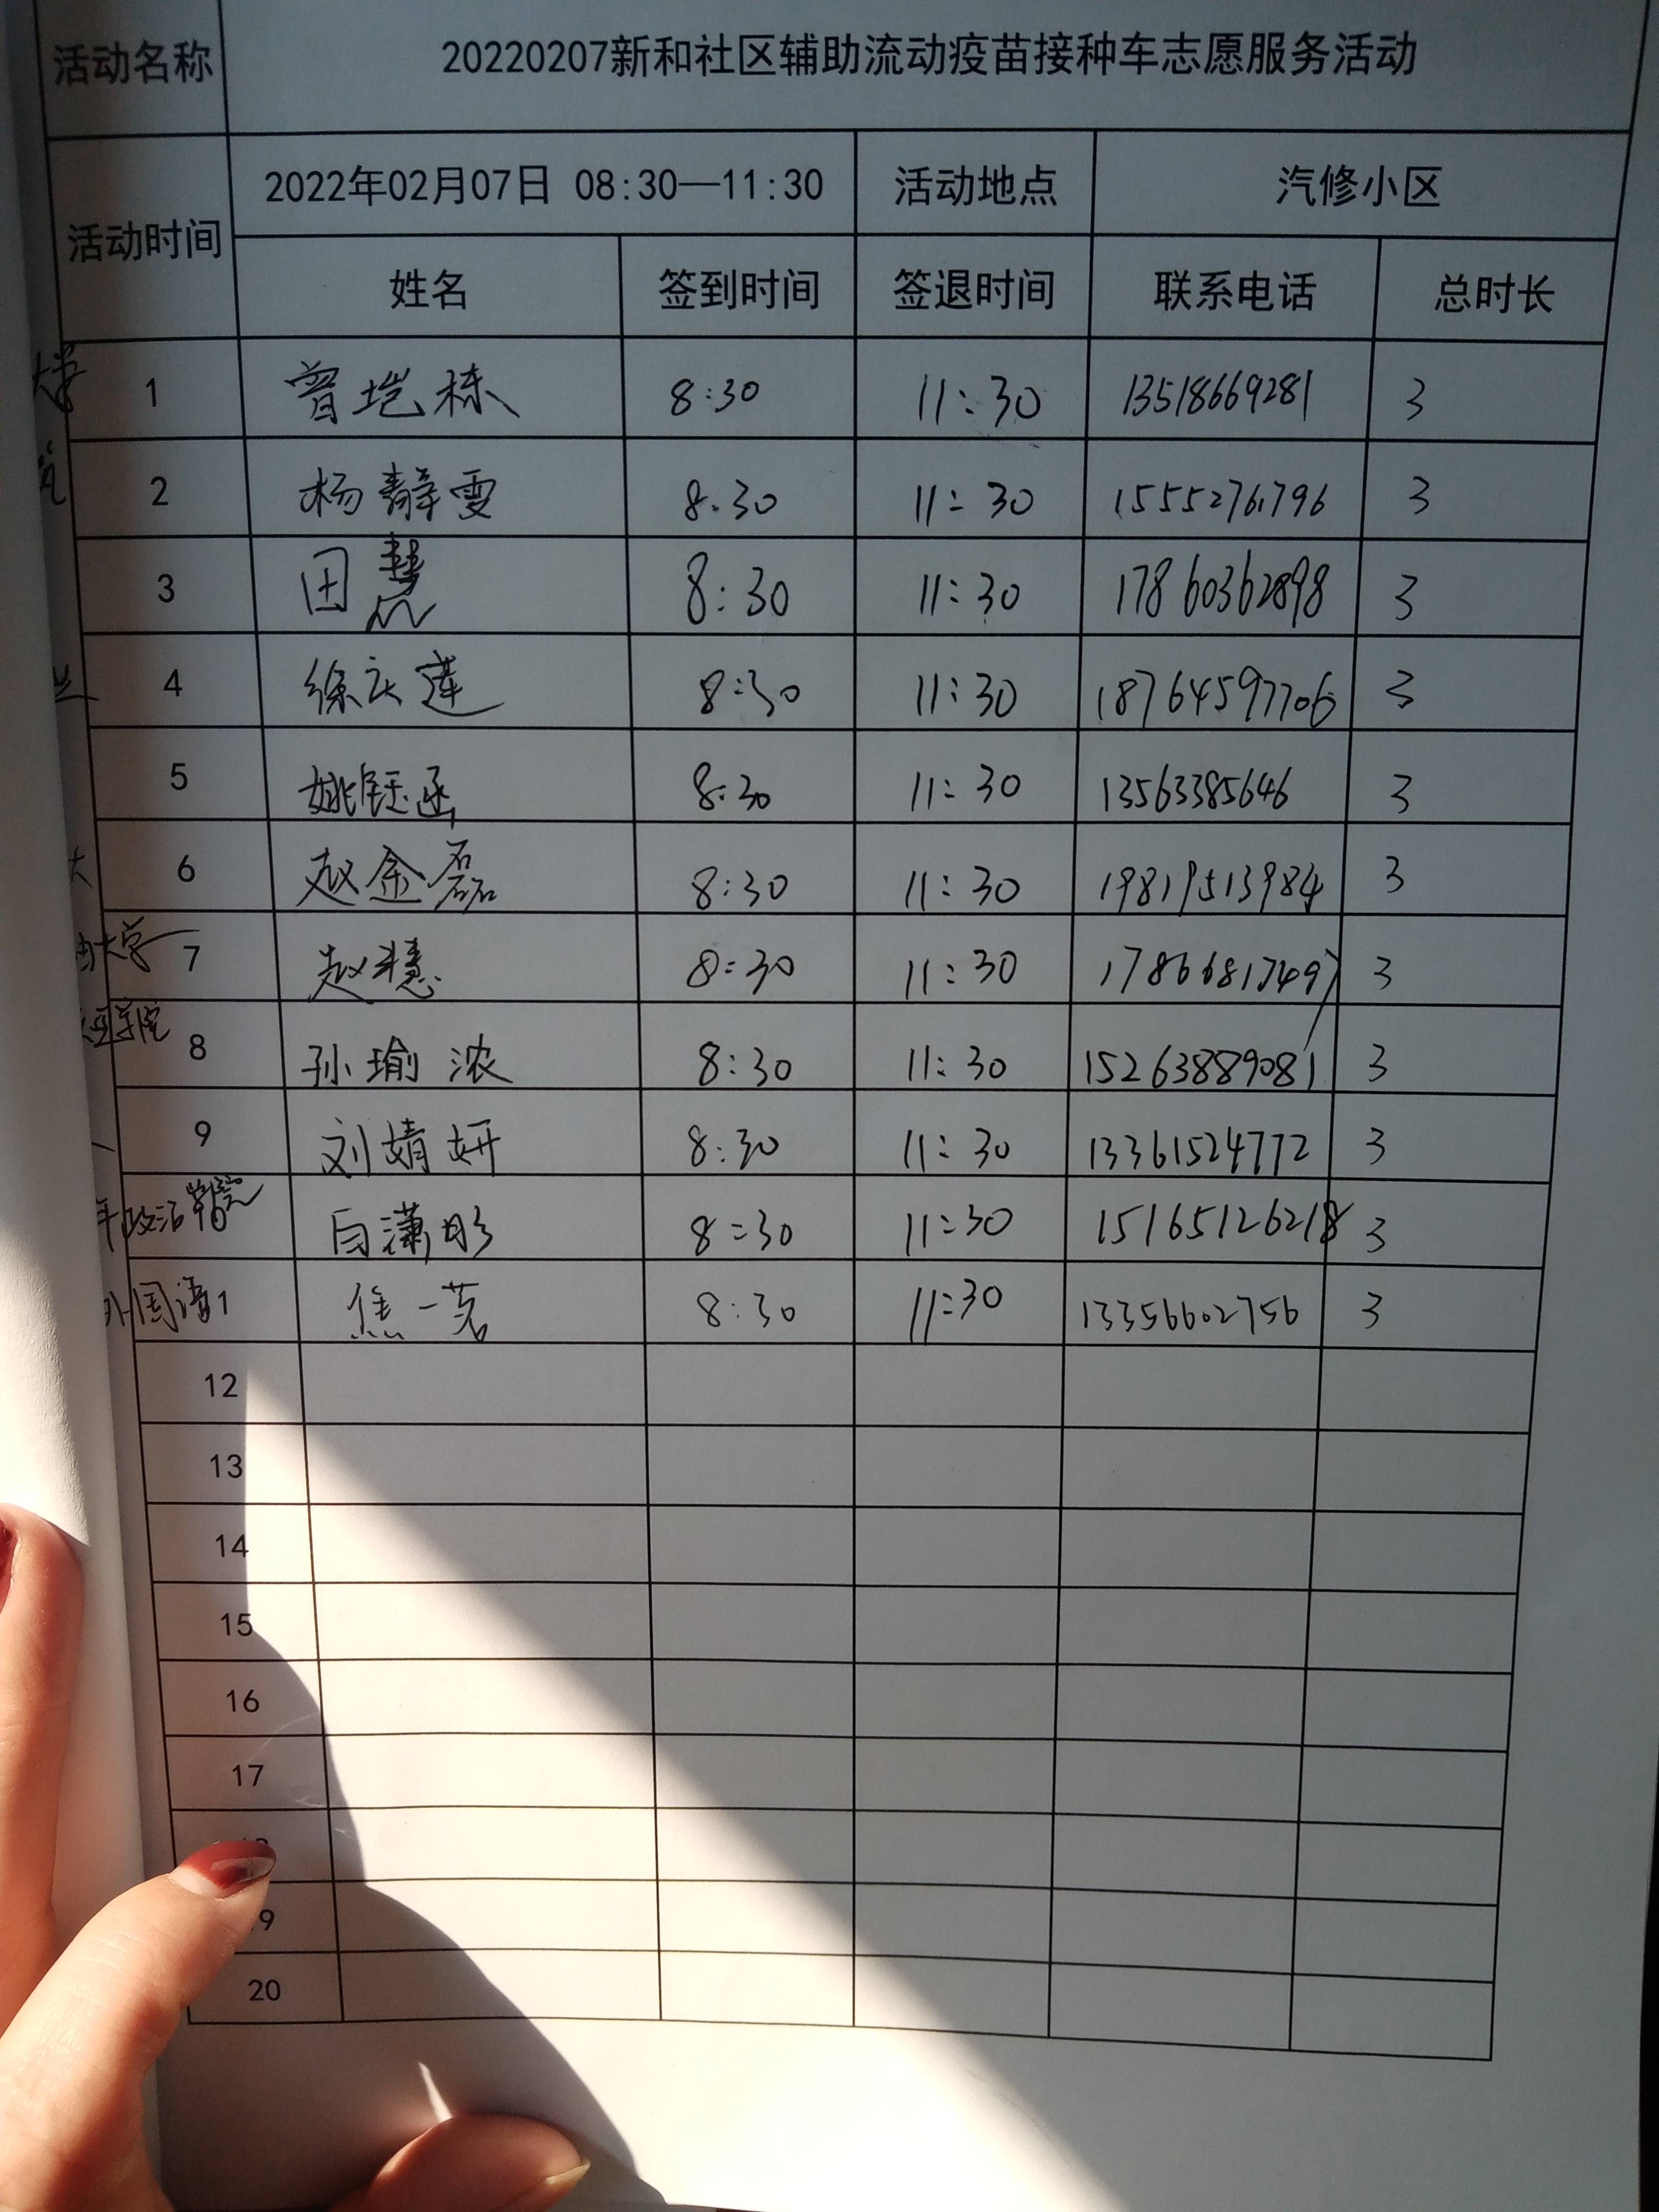 活动名称 20220207新和社区辅助流动疫苗接种车志愿服务活动
活动时间 2022年02月07日 08:30—11:30 活动地点 汽修小区
姓名 签到时间 签退时间 联系电话 总时长
大学 1 曾垲栋 8:30 11:30 13518669281 3
2 杨静雯 8:30 11:30 15552761796 3
3 田慧 8:30 11:30 17860362898 3
4 徐庆莲 8:30 11:30 18764597706 3
5 姚钰函 8:30 11:30 13563385646 3
大 6 赵金磊 8:30 11:30 19819513984 3
大学 7 赵慧 8:30 11:30 17866817497 3
医学院 8 孙瑜浓 8:30 11:30 15263889081 3
9 刘婧妍 8:30 11:30 13361524772 3
政治学院 白潇彤 8:30 11:30 15165126218 3
外国语 1 焦一茗 8:30 11:30 13356602756 3
12
13
14
15
16
17
9
20